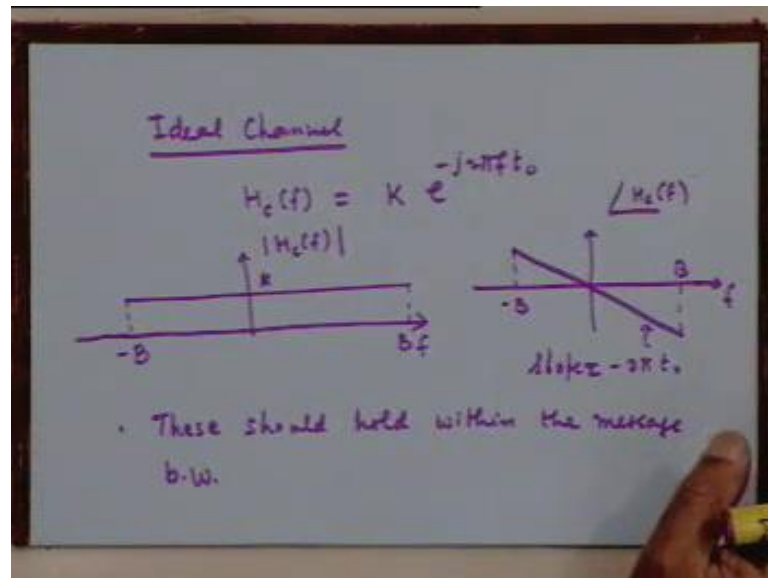 Ideal Channel
H_c(f) = K e^{-j2πft₀}
|H_c(f)|
∠H_c(f)
K
-B
B f
-B
B
f
slope = -2πt₀
. These should hold within the message
b.w.